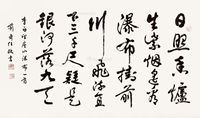 日照香爐
生紫烟遥看
瀑布掛前
川飛流直
下三千尺疑是
銀河落九天
李白望廬山瀑布一首